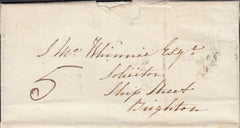 J. Mc Whinnie Esqr.
Solicitor
5
Ship Street
Brighton